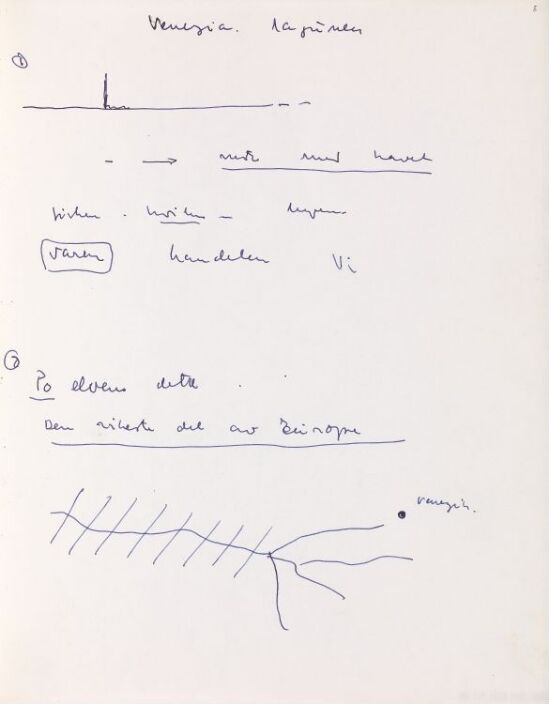 Venezia. lagunen
1
møte med havet
varen handelen Vi
2
Po elvens delta
Den rikeste del av Europa
venezia.